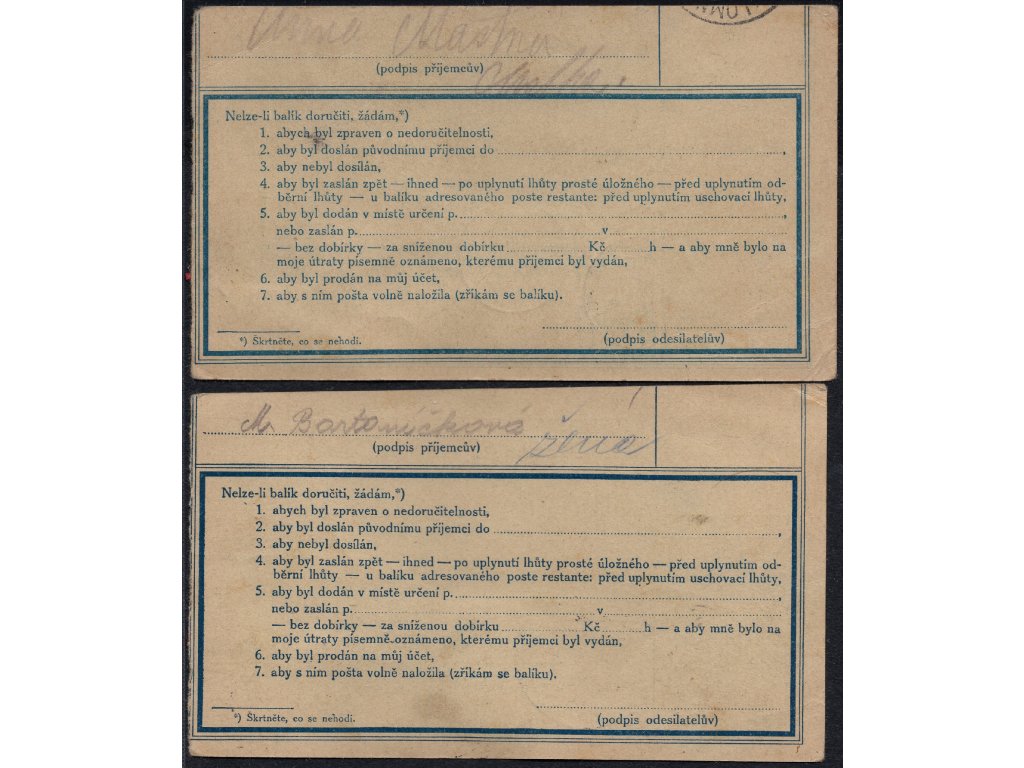 (podpis příjemcův)
Nelze-li balík doručiti, žádám,*)
1. abych byl zpraven o nedoručitelnosti,
2. aby byl doslán původnímu příjemci do ,
3. aby nebyl dosílán,
4. aby byl zaslán zpět — ihned — po uplynutí lhůty prosté úložného — před uplynutím od-
běrní lhůty — u balíku adresovaného poste restante: před uplynutím uschovací lhůty,
5. aby byl dodán v místě určení p. ,
nebo zaslán p. v
— bez dobírky — za sníženou dobírku Kč h — a aby mně bylo na
moje útraty písemně oznámeno, kterému příjemci byl vydán,
6. aby byl prodán na můj účet,
7. aby s ním pošta volně naložila (zříkám se balíku).
*) Škrtněte, co se nehodí.
(podpis odesilatelův)
M. Bartoníčková žena
(podpis příjemcův)
Nelze-li balík doručiti, žádám,*)
1. abych byl zpraven o nedoručitelnosti,
2. aby byl doslán původnímu příjemci do ,
3. aby nebyl dosílán,
4. aby byl zaslán zpět — ihned — po uplynutí lhůty prosté úložného — před uplynutím od-
běrní lhůty — u balíku adresovaného poste restante: před uplynutím uschovací lhůty,
5. aby byl dodán v místě určení p. ,
nebo zaslán p. v
— bez dobírky — za sníženou dobírku Kč h — a aby mně bylo na
moje útraty písemně oznámeno, kterému příjemci byl vydán,
6. aby byl prodán na můj účet,
7. aby s ním pošta volně naložila (zříkám se balíku).
*) Škrtněte, co se nehodí.
(podpis odesilatelův)